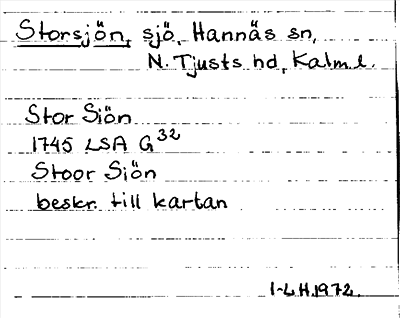 Storsjön, sjö, Hannäs sn,
N. Tjusts hd, Kalm. l.
Stor Siön
1745 LSA G32
Stoor Siön
beskr. till kartan
I-L H. 1972.